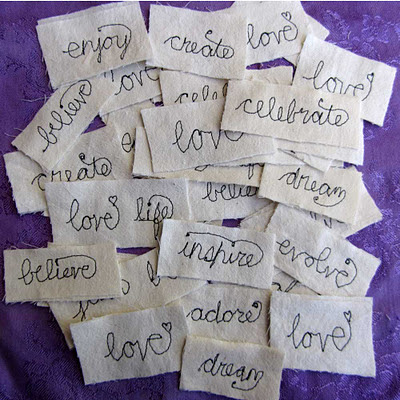 enjoy
create
love
love
believe
celebrate
love
create
dream
love life
believe
inspire
evolve
adore
love
love
dream